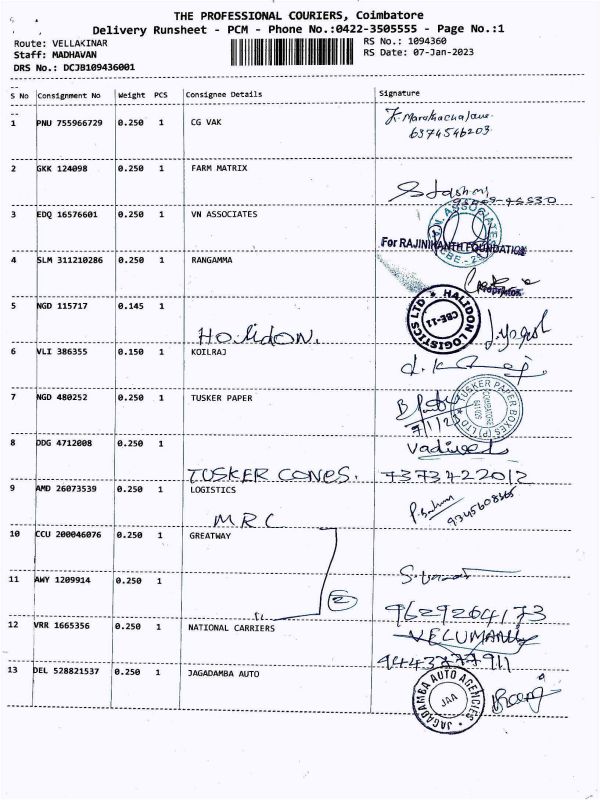 THE PROFESSIONAL COURIERS, Coimbatore
Delivery Runsheet - PCM - Phone No.:0422-3505555 - Page No.:1
Route: VELLAKINAR RS No.: 1094360
Staff: MADHAVAN RS Date: 07-Jan-2023
DRS No.: DCJB109436001
S No Consignment No Weight PCS Consignee Details Signature
1 PNU 755966729 0.250 1 CG VAK
6374546203
2 GKK 124098 0.250 1 FARM MATRIX
3 EDQ 16576601 0.250 1 VN ASSOCIATES
For RAJINIKHANTH FOUNDATION
4 SLM 311210286 0.250 1 RANGAMMA
Proprietor
5 NGD 115717 0.145 1
HALIDON LOGISTICS LTD
CBE-11
HOLIDON.
6 VLI 386355 0.150 1 KOILRAJ
7 NGD 480252 0.250 1 TUSKER PAPER
TUSKER PAPER BOXES (P) LTD
8 DDG 4712008 0.250 1
TUSKER CONES. 7373422012
9 AMD 26073539 0.250 1 LOGISTICS
MRC
10 CCU 200046076 0.250 1 GREATWAY
11 AWY 1209914 0.250 1
2
9629264173
12 VRR 1665356 0.250 1 NATIONAL CARRIERS
VELUMANI
13 DEL 528821537 0.250 1 JAGADAMBA AUTO
JAGADAMBA AUTO AGENCIES
JAA